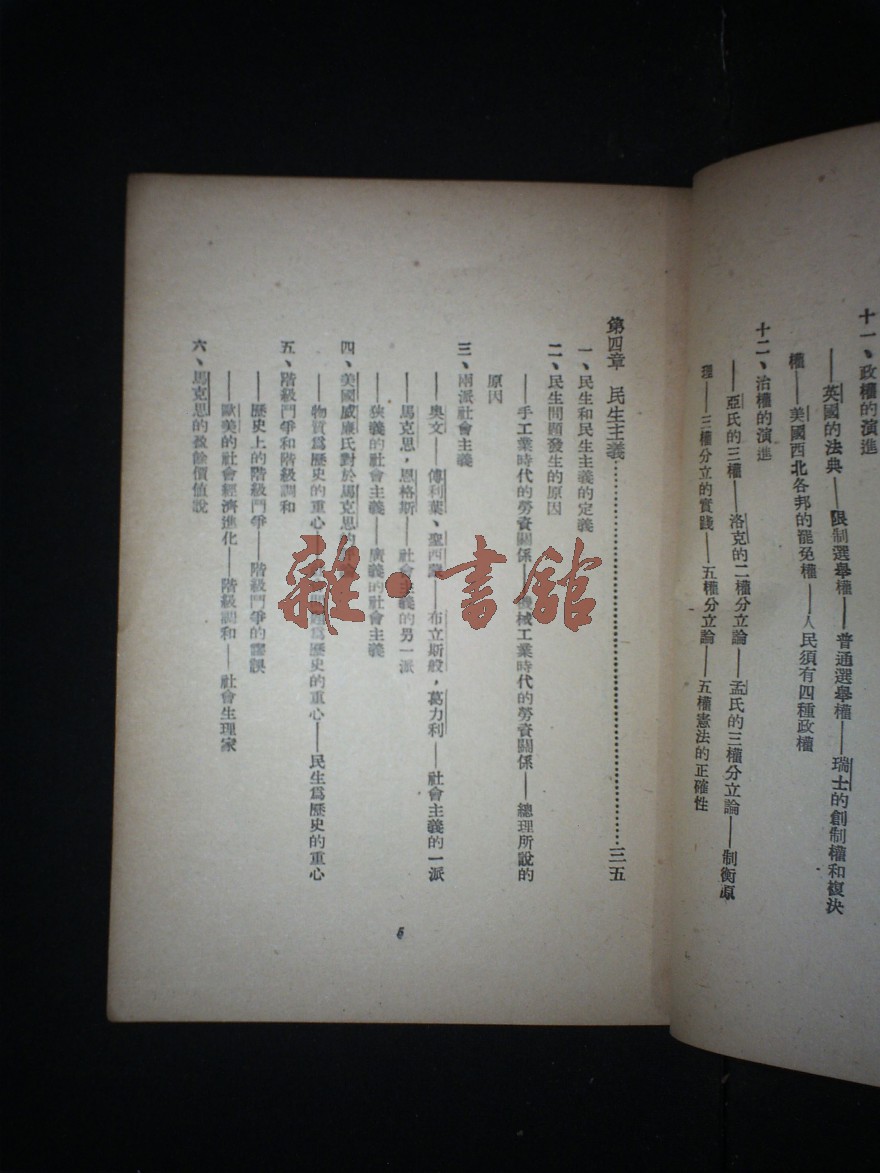 十一、政權的演進
——英國的法典——限制選舉權——普通選舉權——瑞士的創制權和複決
權——美國西北各邦的罷免權——人民須有四種政權
十二、治權的演進
——亞氏的三權——洛克的二權分立論——孟氏的三權分立論——制衡原
理——三權分立的實踐——五權分立論——五權憲法的正確性
第四章 民生主義……三五
一、民生和民生主義的定義
二、民生問題發生的原因
——手工業時代的勞資關係——機械工業時代的勞資關係——總理所說的
原因
三、兩派社會主義
——奧文——傅利葉、聖西——布立斯般，葛力利——社會主義的一派
——馬克思，恩格斯——社會主義的另一派
——狹義的社會主義——廣義的社會主義
四、美國威廉氏對於馬克思的
——物質爲歷史的重心——爲歷史的重心——民生爲歷史的重心
五、階級鬥爭和階級調和
——歷史上的階級鬥爭——階級鬥爭的謬誤
——歐美的社會經濟進化——階級調和——社會生理家
六、馬克思的盈餘價值說
5
雜·書館